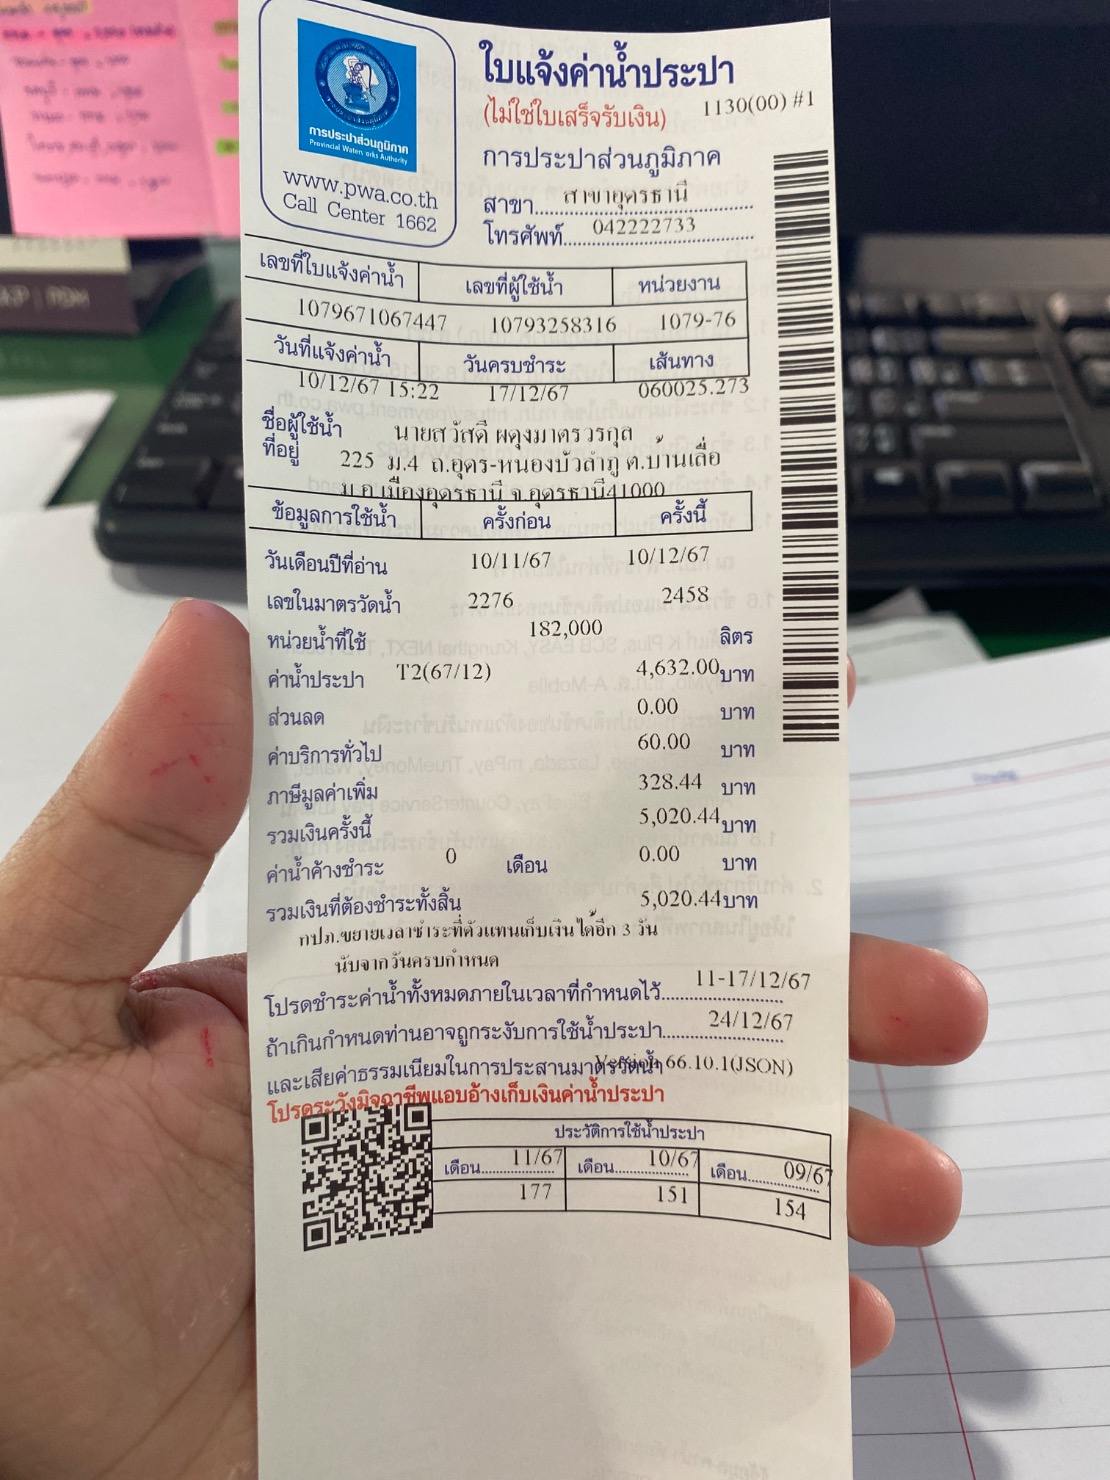 ใบแจ้งค่าน้ำประปา
(ไม่ใช่ใบเสร็จรับเงิน) 1130(00) #1
การประปาส่วนภูมิภาค
Provincial Waterworks Authority
www.pwa.co.th
Call Center 1662
การประปาส่วนภูมิภาค
สาขา สาขาอุดรธานี
โทรศัพท์ 042222733
เลขที่ใบแจ้งค่าน้ำ เลขที่ผู้ใช้น้ำ หน่วยงาน
1079671067447 10793258316 1079-76
วันที่แจ้งค่าน้ำ วันครบชำระ เส้นทาง
10/12/67 15:22 17/12/67 060025.273
ชื่อผู้ใช้น้ำ นายสวัสดิ์ ผดุงมาตรวรกุล
ที่อยู่ 225 ม.4 ถ.อุดร-หนองบัวลำภู ต.บ้านเลื่อ
ม อ.เมืองอุดรธานี จ.อุดรธานี41000
ข้อมูลการใช้น้ำ ครั้งก่อน ครั้งนี้
วันเดือนปีที่อ่าน 10/11/67 10/12/67
เลขในมาตรวัดน้ำ 2276 2458
หน่วยน้ำที่ใช้ 182,000 ลิตร
ค่าน้ำประปา T2(67/12) 4,632.00 บาท
ส่วนลด 0.00 บาท
ค่าบริการทั่วไป 60.00 บาท
ภาษีมูลค่าเพิ่ม 328.44 บาท
รวมเงินครั้งนี้ 5,020.44 บาท
ค่าน้ำค้างชำระ 0 เดือน 0.00 บาท
รวมเงินที่ต้องชำระทั้งสิ้น 5,020.44 บาท
กปภ.ขยายเวลาชำระที่ตัวแทนเก็บเงินได้อีก 3 วัน
นับจากวันครบกำหนด
โปรดชำระค่าน้ำทั้งหมดภายในเวลาที่กำหนดไว้ 11-17/12/67
ถ้าเกินกำหนดท่านอาจถูกระงับการใช้น้ำประปา 24/12/67
และเสียค่าธรรมเนียมในการประสานมาตรวัดน้ำ Version 66.10.1(JSON)
โปรดระวังมิจฉาชีพแอบอ้างเก็บเงินค่าน้ำประปา
ประวัติการใช้น้ำประปา
เดือน 11/67 เดือน 10/67 เดือน 09/67
177 151 154